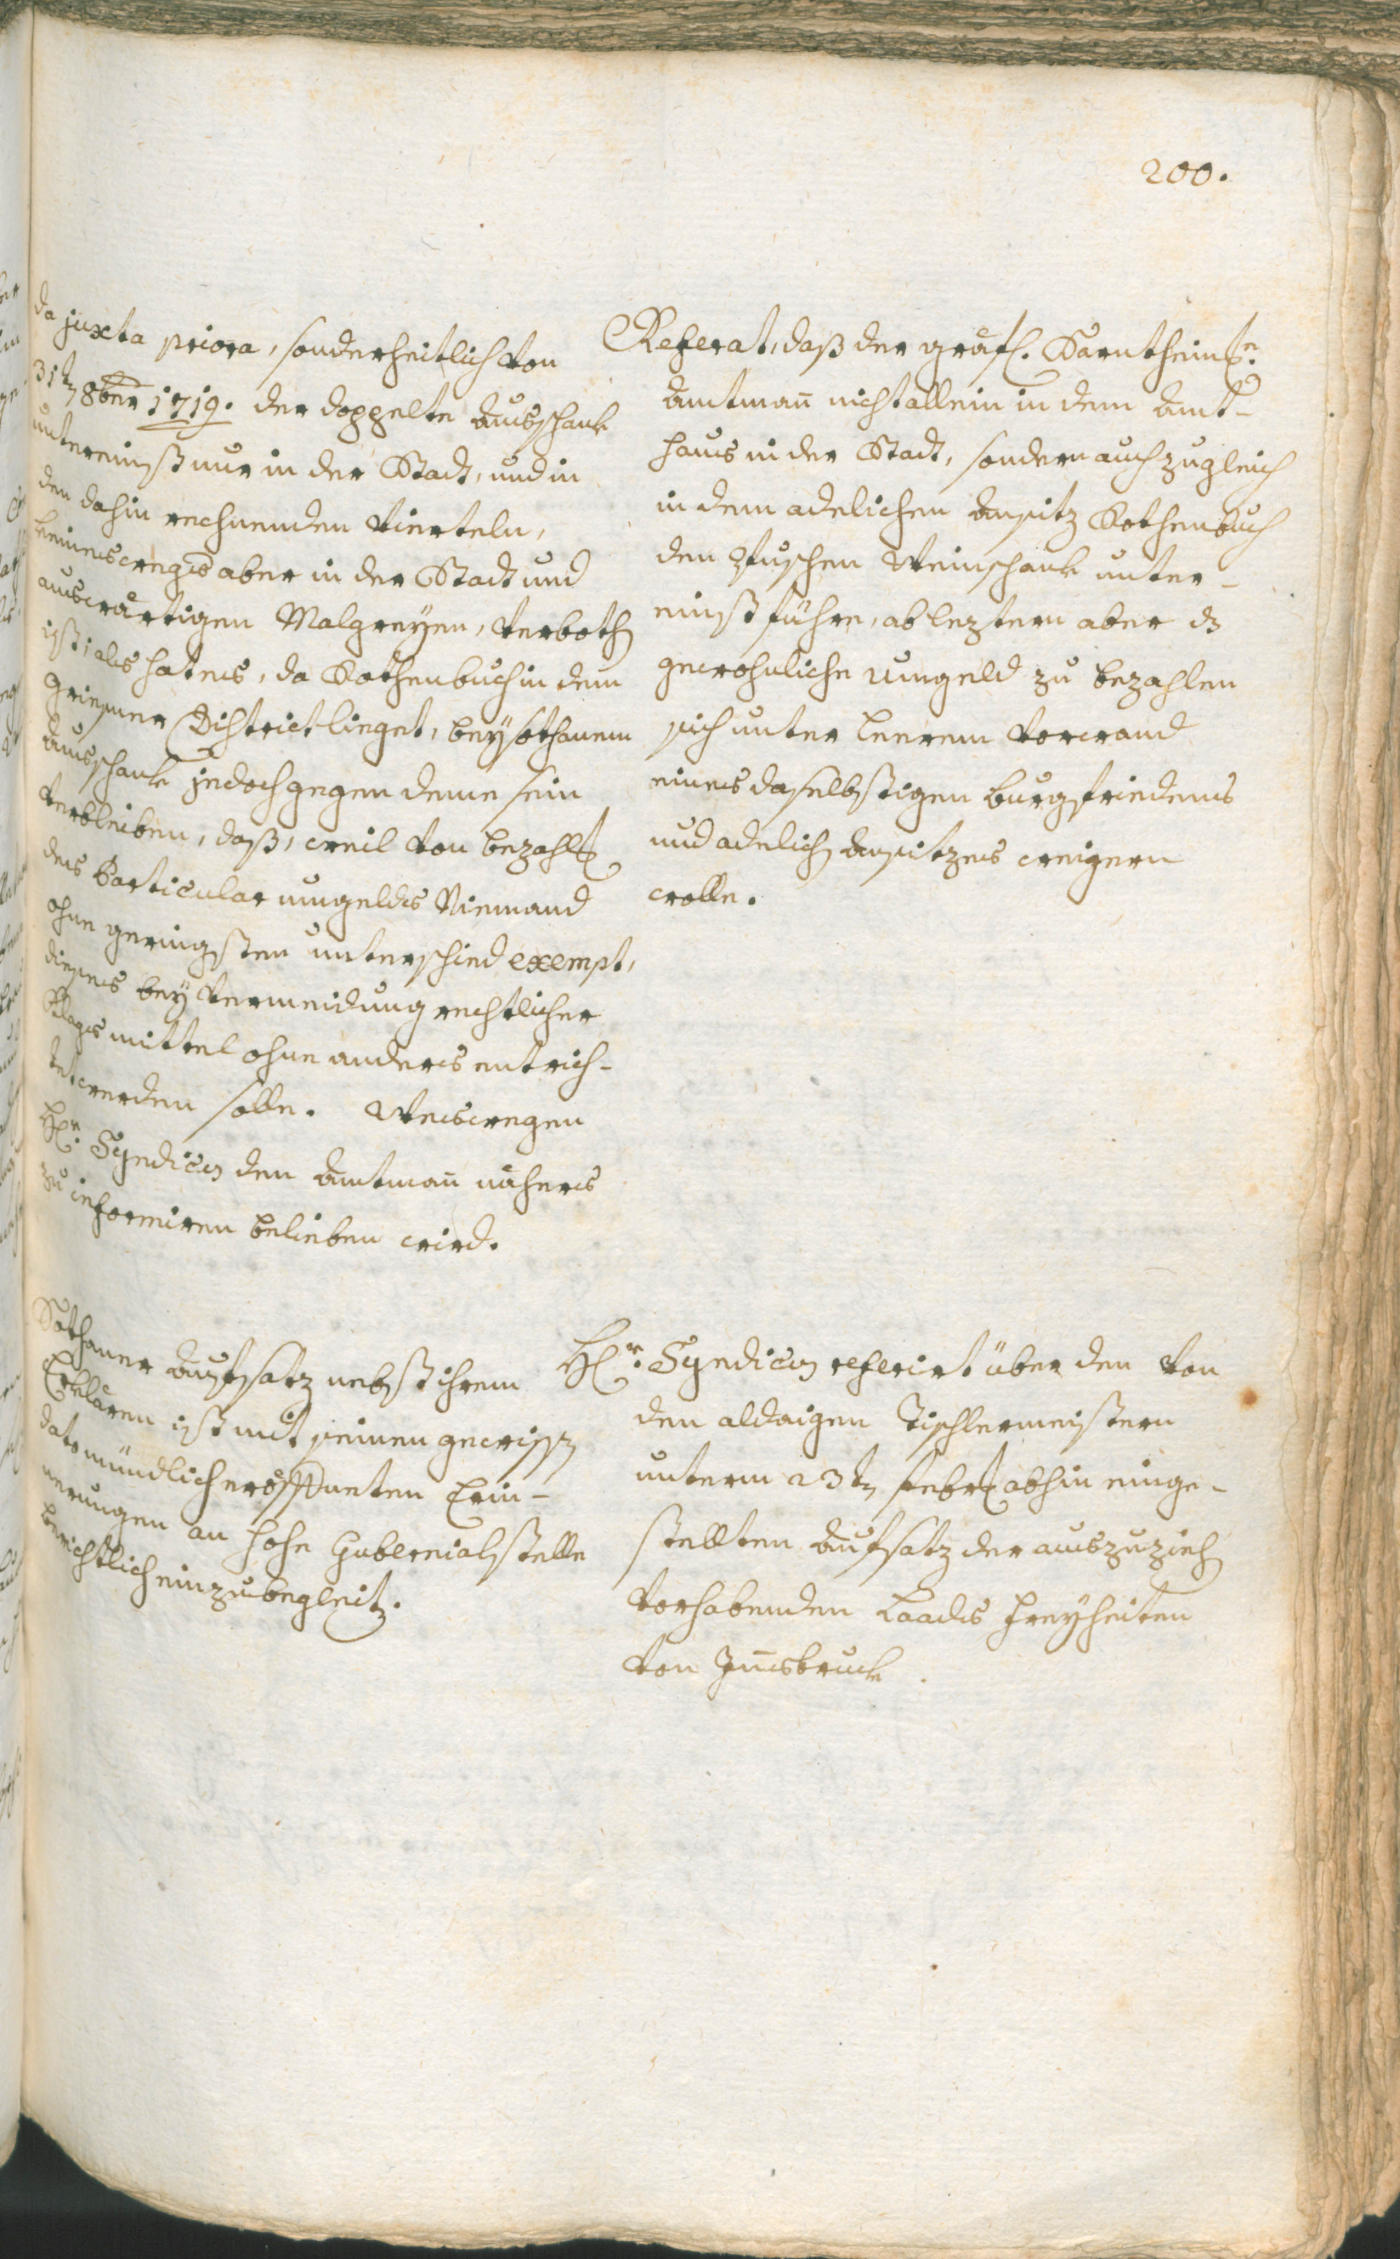 200.
da juxta priora, sonderheitlich von
31t 8ber 1719. der doppelte Ausschank
untereinst nur in der Stadt, und in
den dahin rechnenden Vierteln,
keineswegs aber in der Stadt und
auswärtigen Malgreyen, verboth
ist; als hat es, da Rothenbuch in dem
Grieser District lieget, bey sothanem
Ausschank jedoch gegen deme sein
Verbleiben, daß, weil von bezahl
des Particular umgelds Niemand
ohne geringsten unterschied exempt,
dieses bey Vermeidung rechtlicher
Klags mittel ohne anders entrich-
tet werden solle. Weswegen
Hr. Syndicus den Amtmañ näheres
zu informiren belieben wird.
Referat, daß der gräfl. Sarntheins.
Amtmañ nicht allein in dem Amt-
haus in der Stadt, sondern auch zugleich
in dem adelichen Ansitz Rothenbuch
den Pfuschen Weinschank unter-
einst führe, ab leztern aber dz
gewohnliche Umgeld zu bezahlen
sich unter leerem Vorwand
eines daselbstigen Burgfriedens
und adelich Ansitzes weigern
wolle.
Sothaner Aufsatz nebst ihrem
Erklären ist mit seinen gewissen
dato mündlich eröffneten Erin-
nerungen an hohe Gubernialstelle
berichtlich einzubegleit.
Hr. Syndicus referirt über den von
den aldaigen Tischlermeistern
unterm 23t Febr abhin einge-
stellten Aufsatz der auszuzieh
vorhabenden Laads Freyheiten
von Iñsbruck.